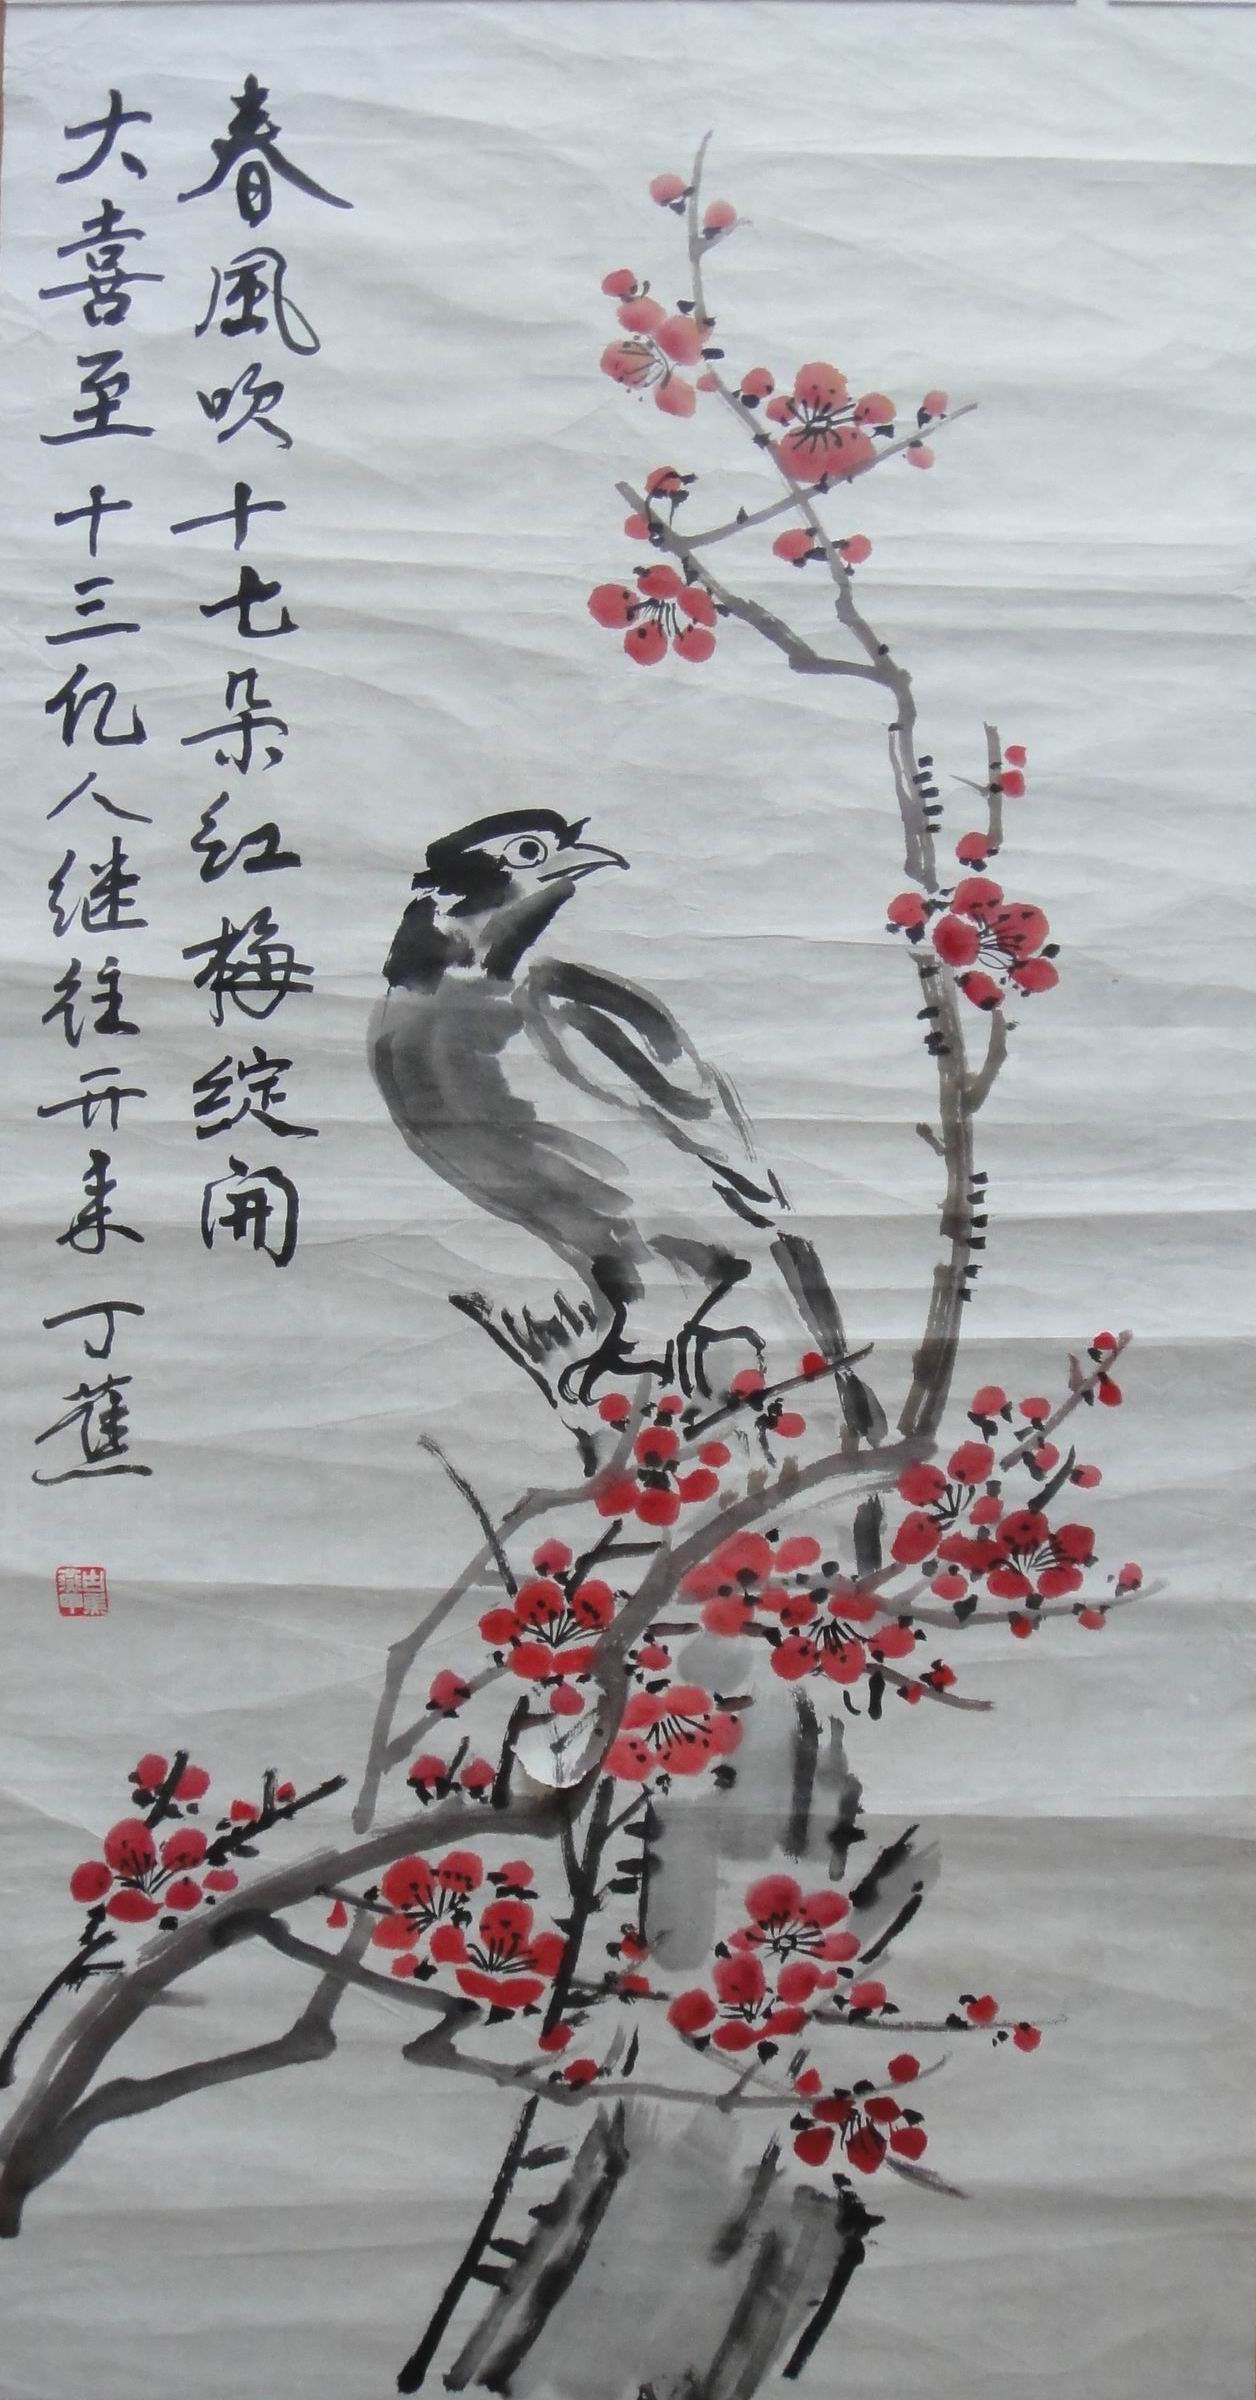 春風吹十七朵红梅绽開
大喜至十三亿人继往开来 丁蕉